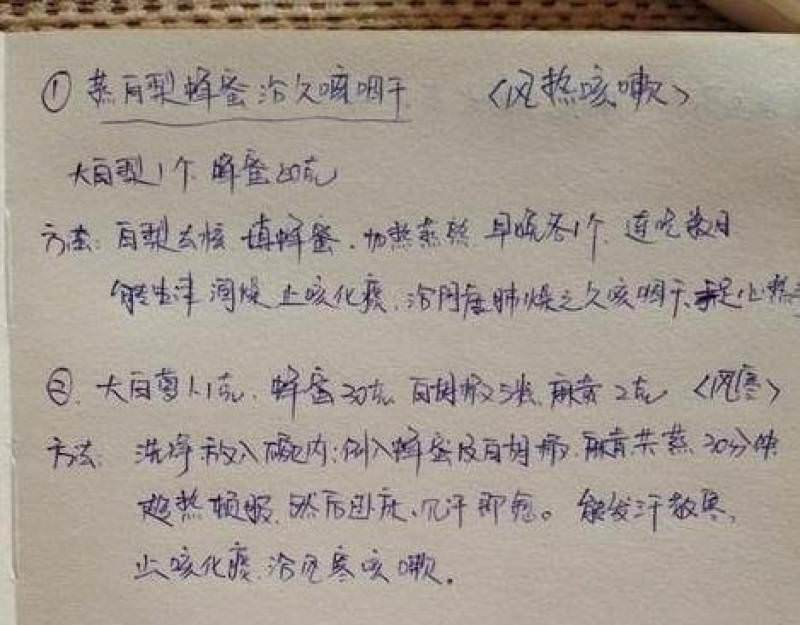 ① 蒸白梨蜂蜜治久咳咽干 〈风热咳嗽〉
大白梨1个 蜂蜜20克
方法: 白梨去核 填蜂蜜. 加热蒸熟 早晚各1个. 连吃数日
能生津润燥 止咳化痰. 治阴虚肺燥之久咳咽干. 手足心热
②. 大白萝卜1克. 蜂蜜30克. 白胡椒5粒. 麻黄2克 〈风寒〉
方法: 洗净放入碗内: 倒入蜂蜜及白胡椒. 麻黄共蒸30分钟
趁热顿服. 然后卧床. 见汗即愈。 能发汗散寒,
止咳化痰. 治风寒咳嗽.